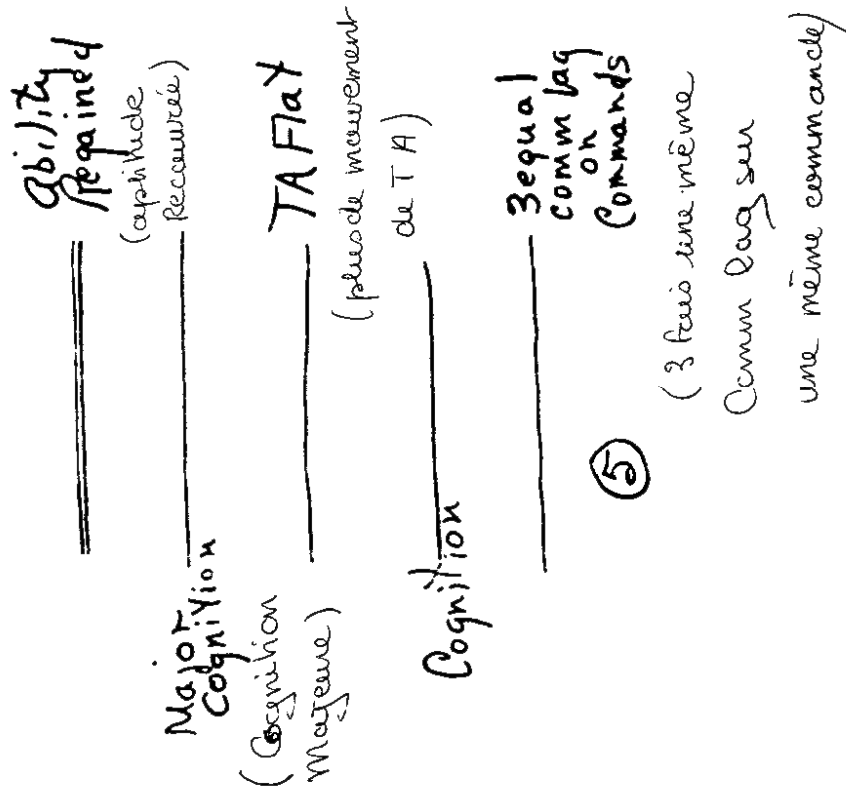 Ability
Regained
(aptitude
Recouvrée)
Major
Cognition
(Cognition
Majeure)
TA Flat
(plus de mouvement
de TA)
Cognition
3 equal
comm lag
on
Commands
5
(3 fois une même
Comm lag sur
une même commande)